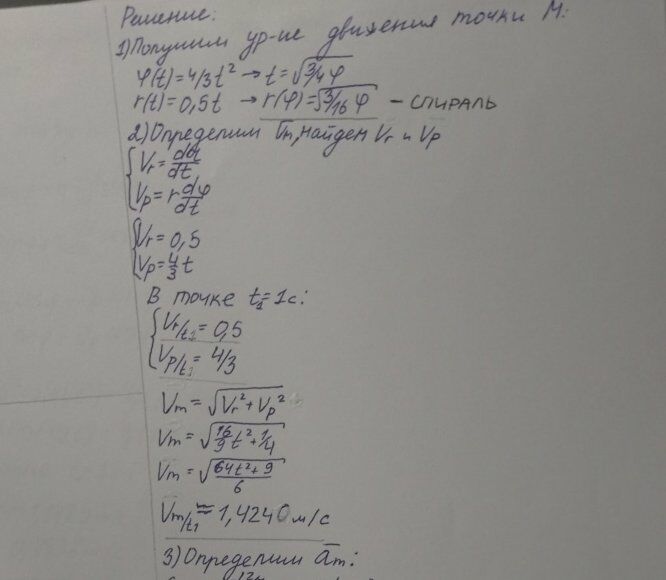 Решение:
1) Получим ур-ие движения точки M:
φ(t)=4/3t² → t=√3/4φ
r(t)=0,5t → r(φ)=√3/16φ – СПИРАЛЬ
2) Определим V̄m, найдем Vr и Vp
{Vr = dr/dt
Vp = r dφ/dt
{Vr = 0,5
Vp = 4/3 t
В точке t₁=1с:
{Vr/t₁ = 0,5
Vp/t₁ = 4/3
Vm = √Vr²+Vp²
Vm = √16/9 t²+1/4
Vm = √64t²+9/6
Vm/t₁ ≈ 1,4240 м/с
3) Определим a̅m: